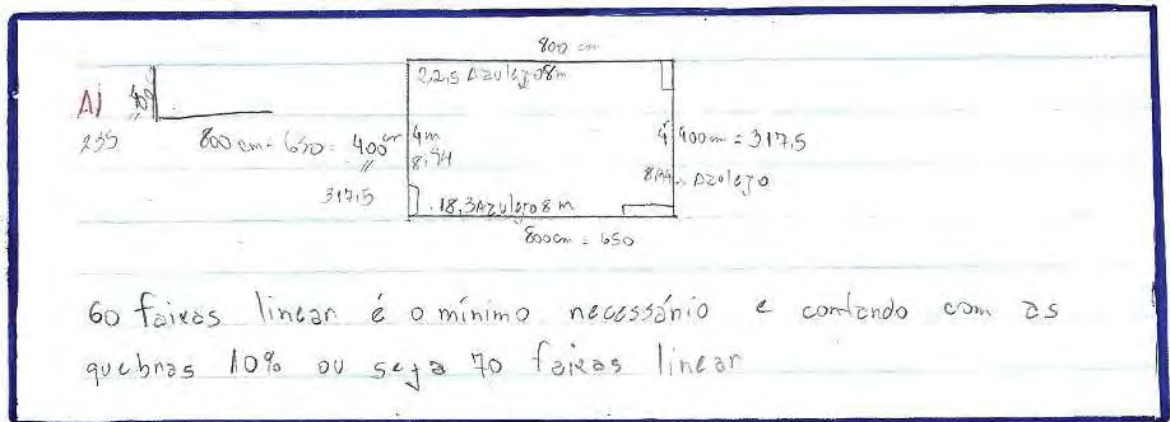 800 cm
22,5 Azulejo 8m
A)
400
235
800 cm = 650 = 400 cm
4m
4
400 cm = 317,5
8,94
8,94 Azulejo
317,5
18,3 Azulejo 8 m
800 cm = 650
60 faixas linear é o mínimo necessário e contando com as
quebras 10% ou seja 70 faixas linear